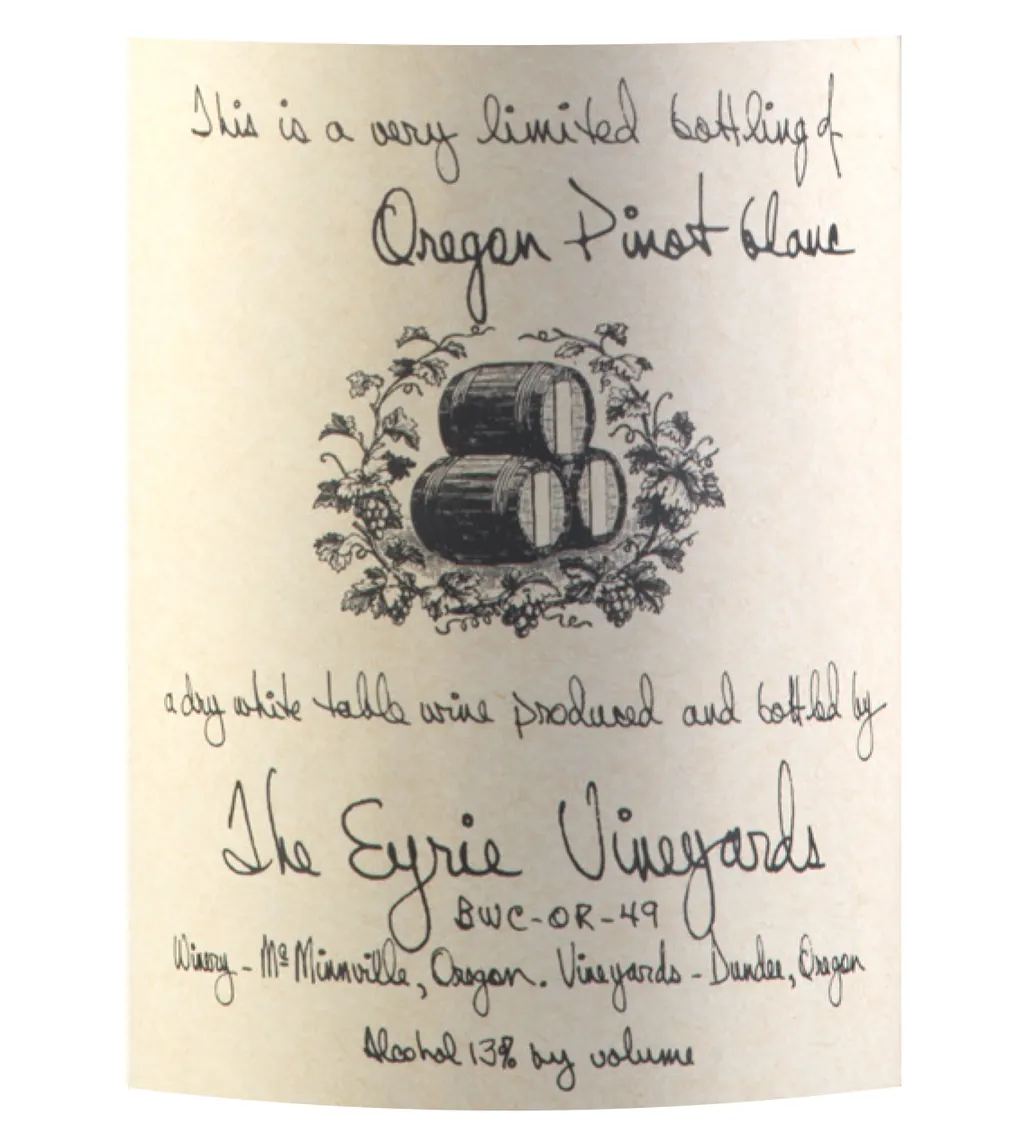 This is a very limited bottling of
Oregon Pinot blanc
a dry white table wine produced and bottled by
The Eyrie Vineyards
BWC-OR-49
Winery - Mc Minnville, Oregon. Vineyards - Dundee, Oregon
Alcohol 13% by volume